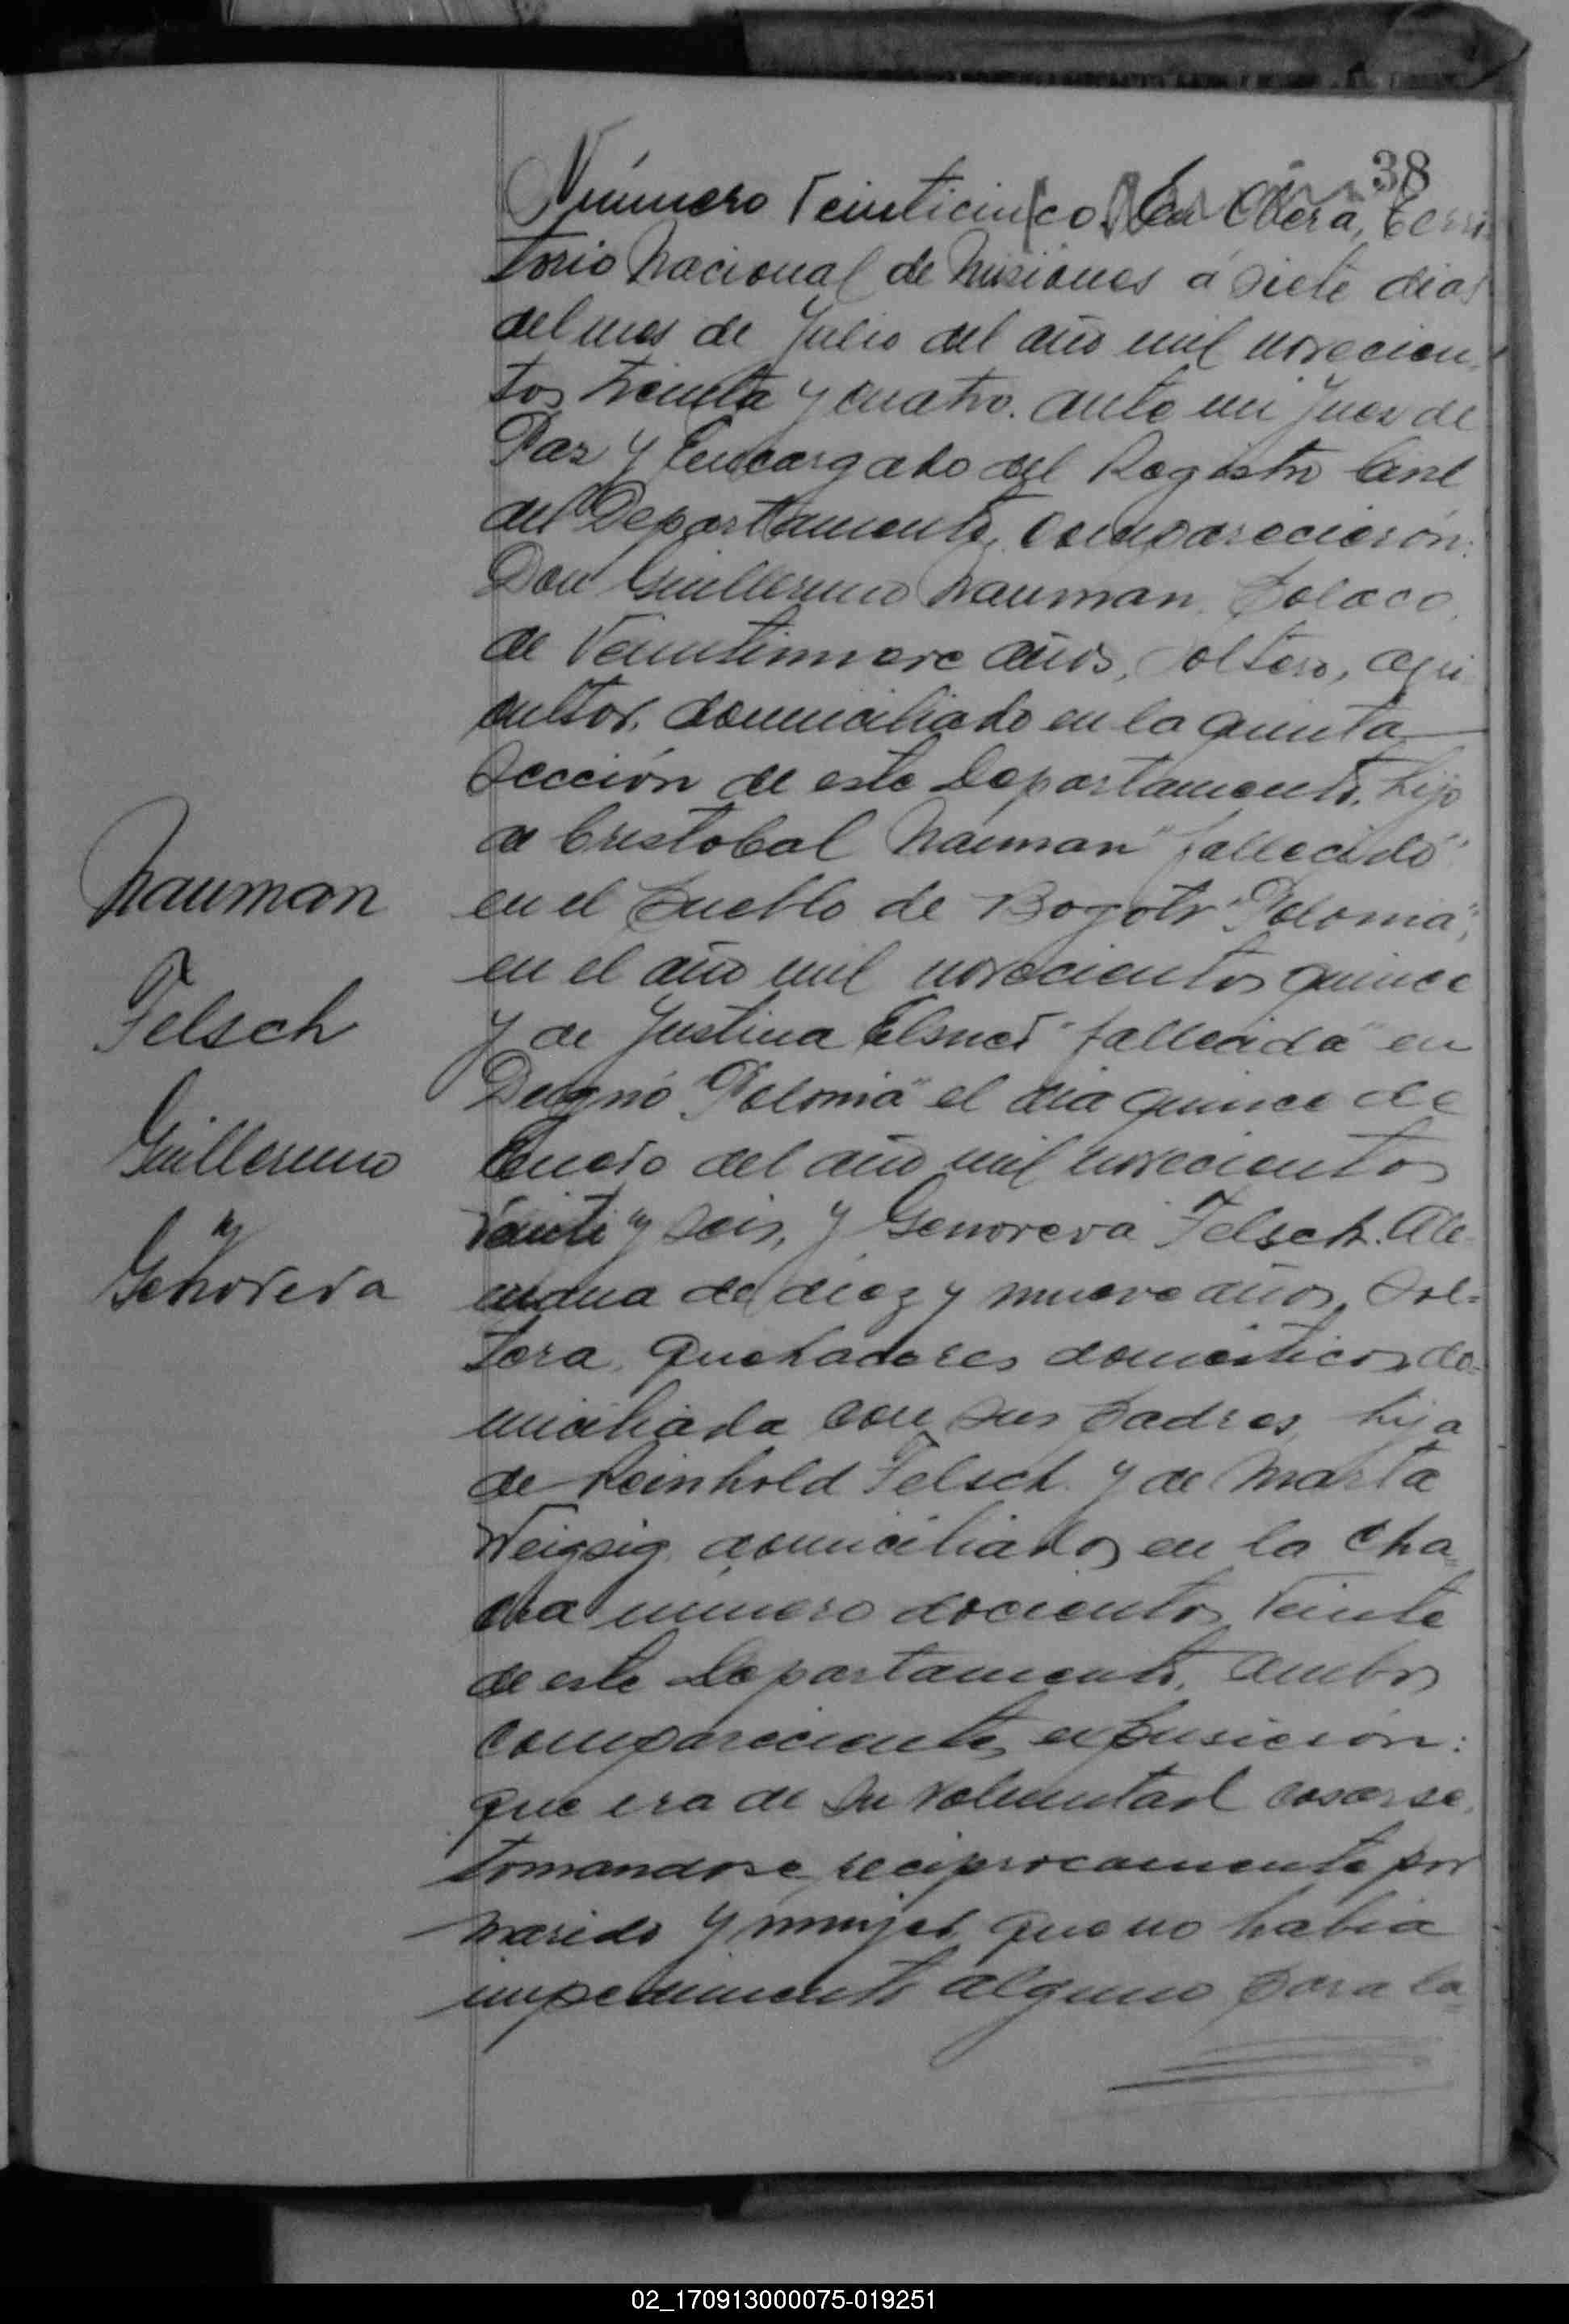 38
Número Veinticinco. En Oberá, Terri-
torio Nacional de Misiones á siete dias
del mes de Julio del año mil novecien-
tos treinta y cuatro. ante mi Juez de
Paz y Encargado del Registro Civil
del Departamento, comparecieron:
Don Guillermo Nauman, Polaco,
de Veintinueve años, soltero, agri-
cultor, domiciliado en la quinta
Sección de este Departamento, hijo
de Cristobal Nauman "fallecido"
en el Pueblo de "Polonia",
en el año mil novecientos quince
y de Justina Elsner "fallecida" en
"Polonia" el dia quince de
Enero del año mil novecientos
Veinti y seis, y Genoveva Felsch. Ale-
mana de diez y nueve años, Sol-
tera, quehaceres domesticos, do-
miciliada con sus Padres, hija
de Reinhold Felsch y de Marta
Weigsig, domiciliados en la Cha-
cra número docientos Veinte
de este Departamento, ambos
comparecientes expusieron:
que era de su Voluntad casarse,
tomandose reciprocamente por
marido y mujer, que no habia
impedimento alguno para la
Nauman
Felsch
Guillermo
y
Genoveva
02_170913000075-019251